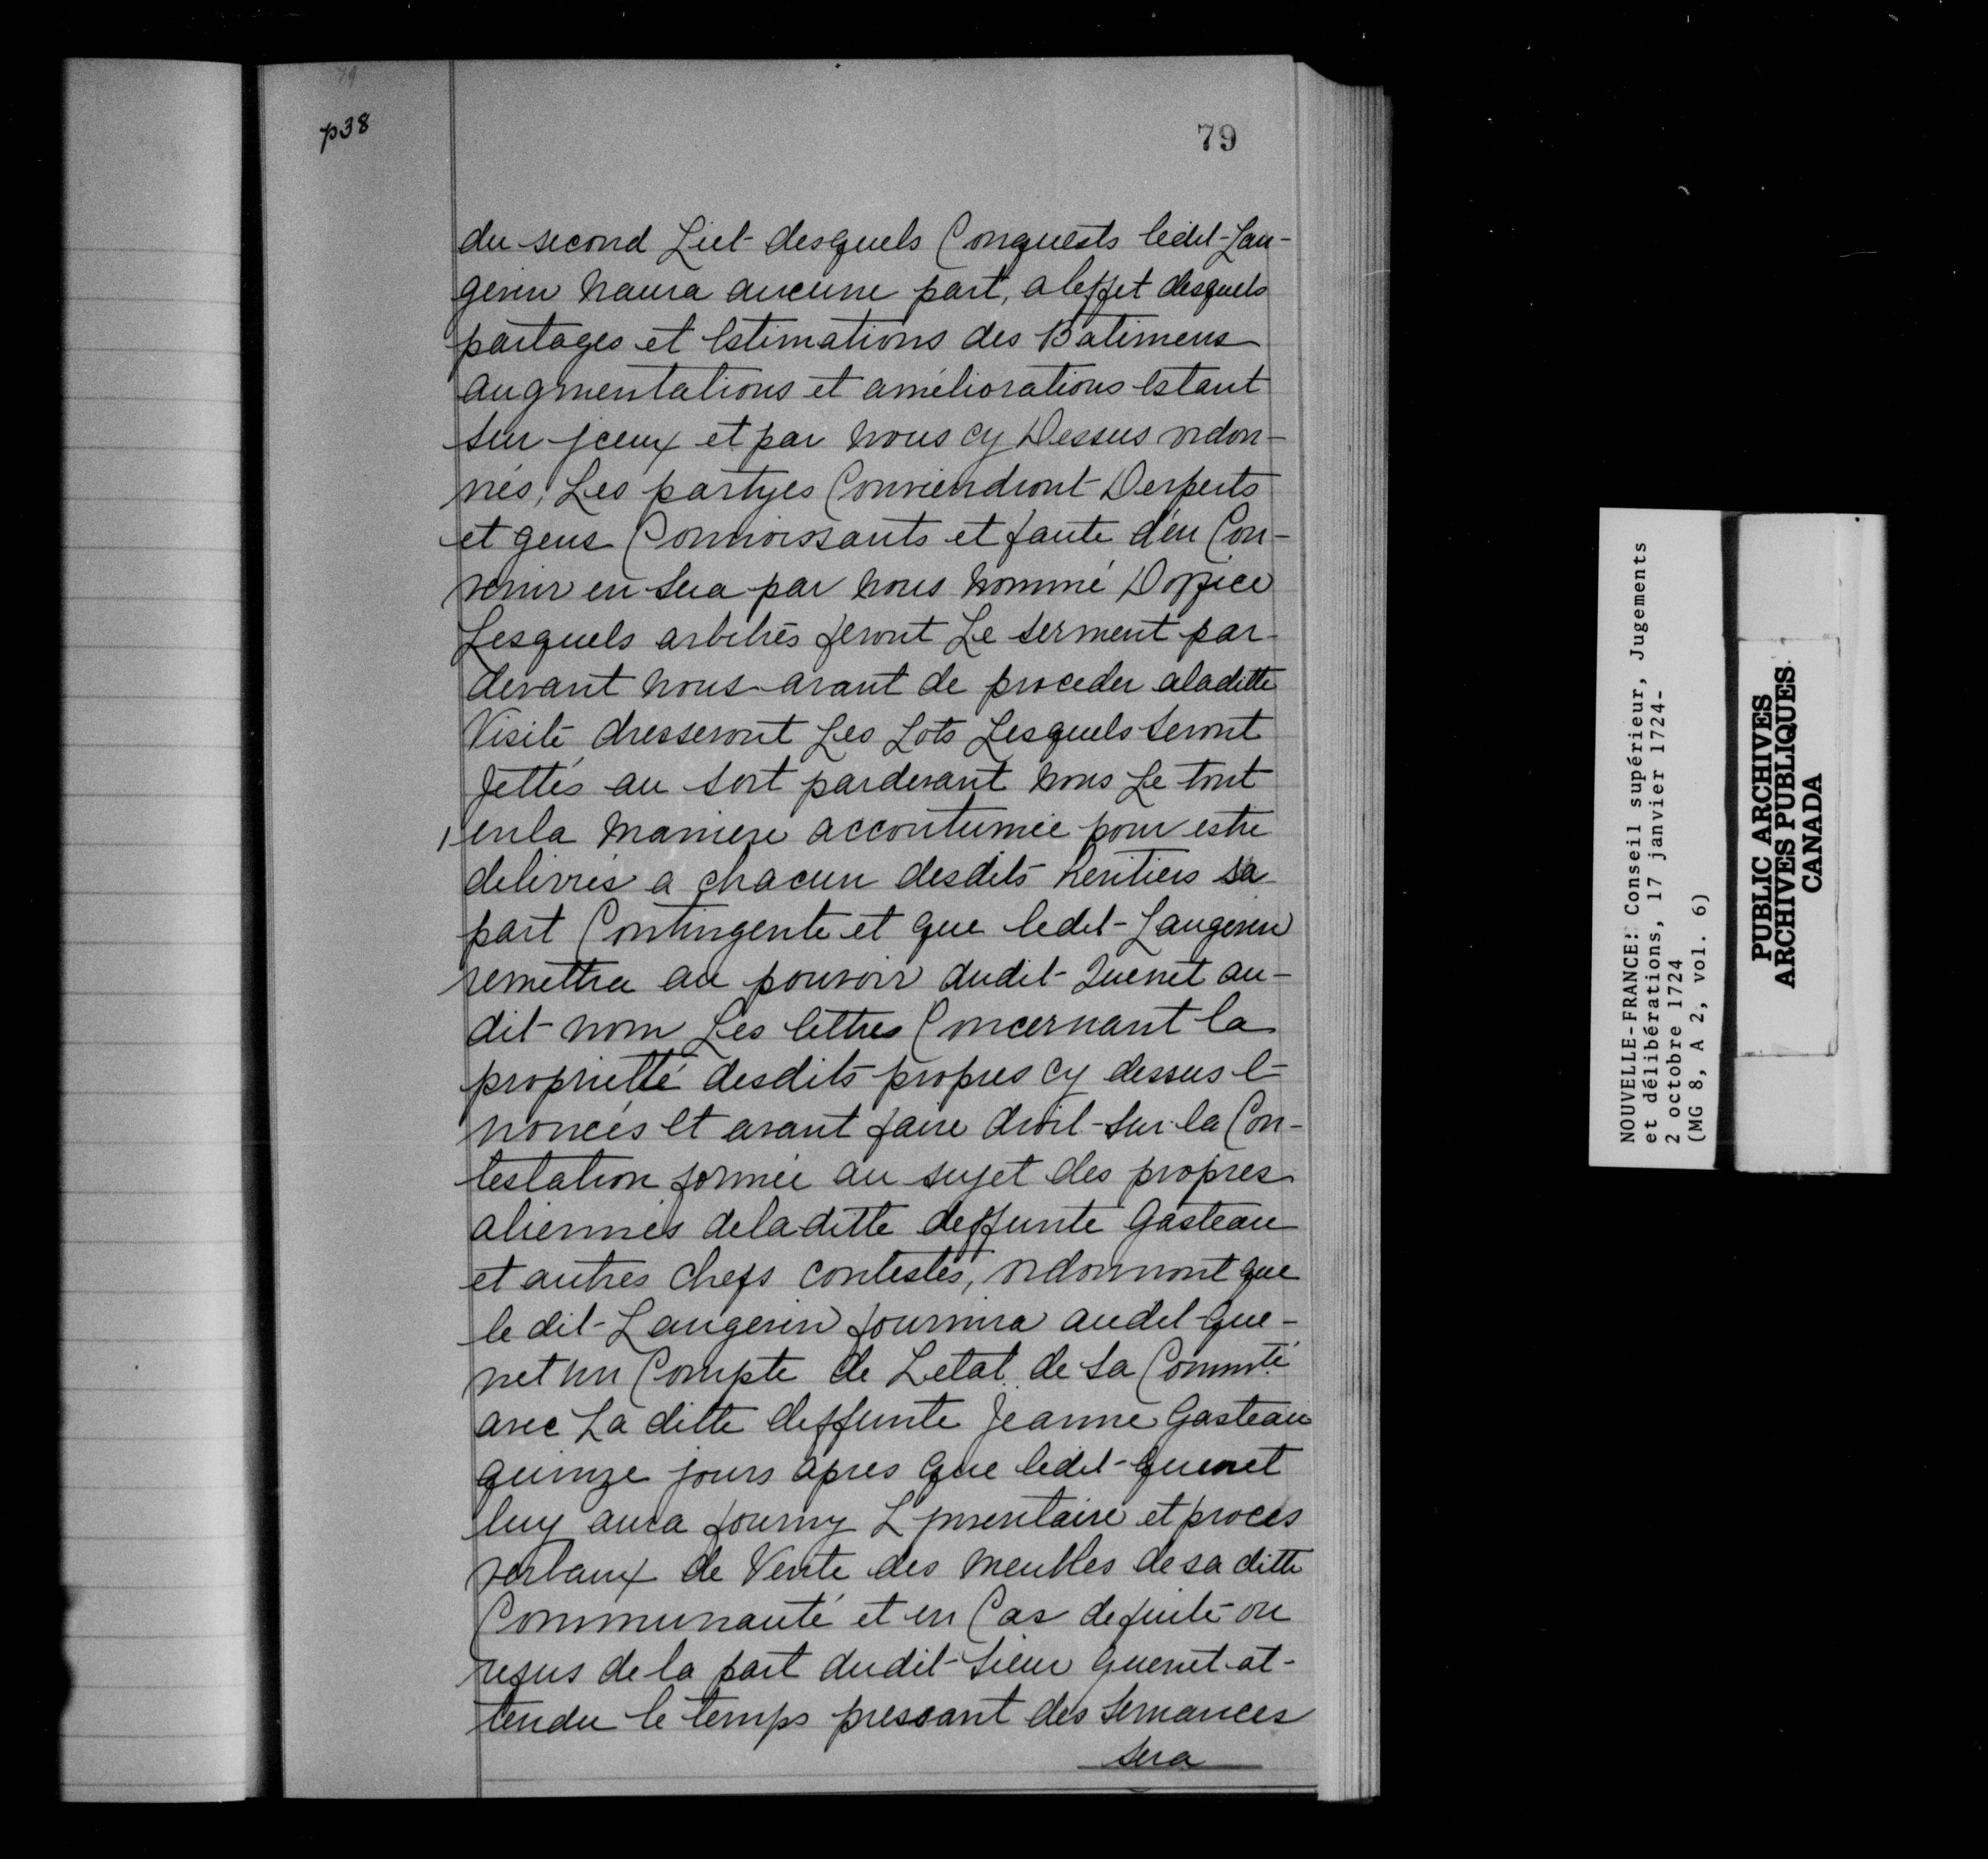 79
p38
79
du second Lict desquels Conquests ledit Lan-
gevin naura aucune part, a leffet desquels
partages et Estimations des Batimens
augmentations et améliorations Estant
sur jceux et par nous cy Dessus ordon-
nés, Les partyes Conviendront Dexperts
et gens Connoissants et faute d'en Con-
venir en sera par nous nommé Doffice
Lesquels arbitres feront Le serment par-
devant nous avant de proceder aladitte
Visite dresseront Les Lots Lesquels seront
Jettés au sort pardevant nous Le tout
enla maniere accoutumée pour estre
delivrés a chacun desdits heritiers sa
part Contingente et que ledit Langevin
remettra au pouvoir dudit Quenet au-
dit nom Les lettres Concernant la
proprietté desdits propres cy dessus E-
noncés Et avant faire droit sur la Con-
testation formée au sujet des propres
aliennés deladitte deffunte Gasteau
et autres chefs contestés, ordonnont que
le dit Langevin fournira audit Que-
net un Compte de Letat de sa Commté
avec La ditte deffunte Jeanne Gasteau
quinze jours apres que ledit Quenet
luy aura fourny Ljnventaire et proces
verbaux de Vente des meubles de sa ditte
Communauté et en Cas de fuite ou
refus de la part dudit sieur Quenet at-
tendu le temps pressant des semances
sera
NOUVELLE-FRANCE: Conseil supérieur, Jugements
et délibérations, 17 janvier 1724-
2 octobre 1724
(MG 8, A 2, vol. 6)
PUBLIC ARCHIVES
ARCHIVES PUBLIQUES
CANADA